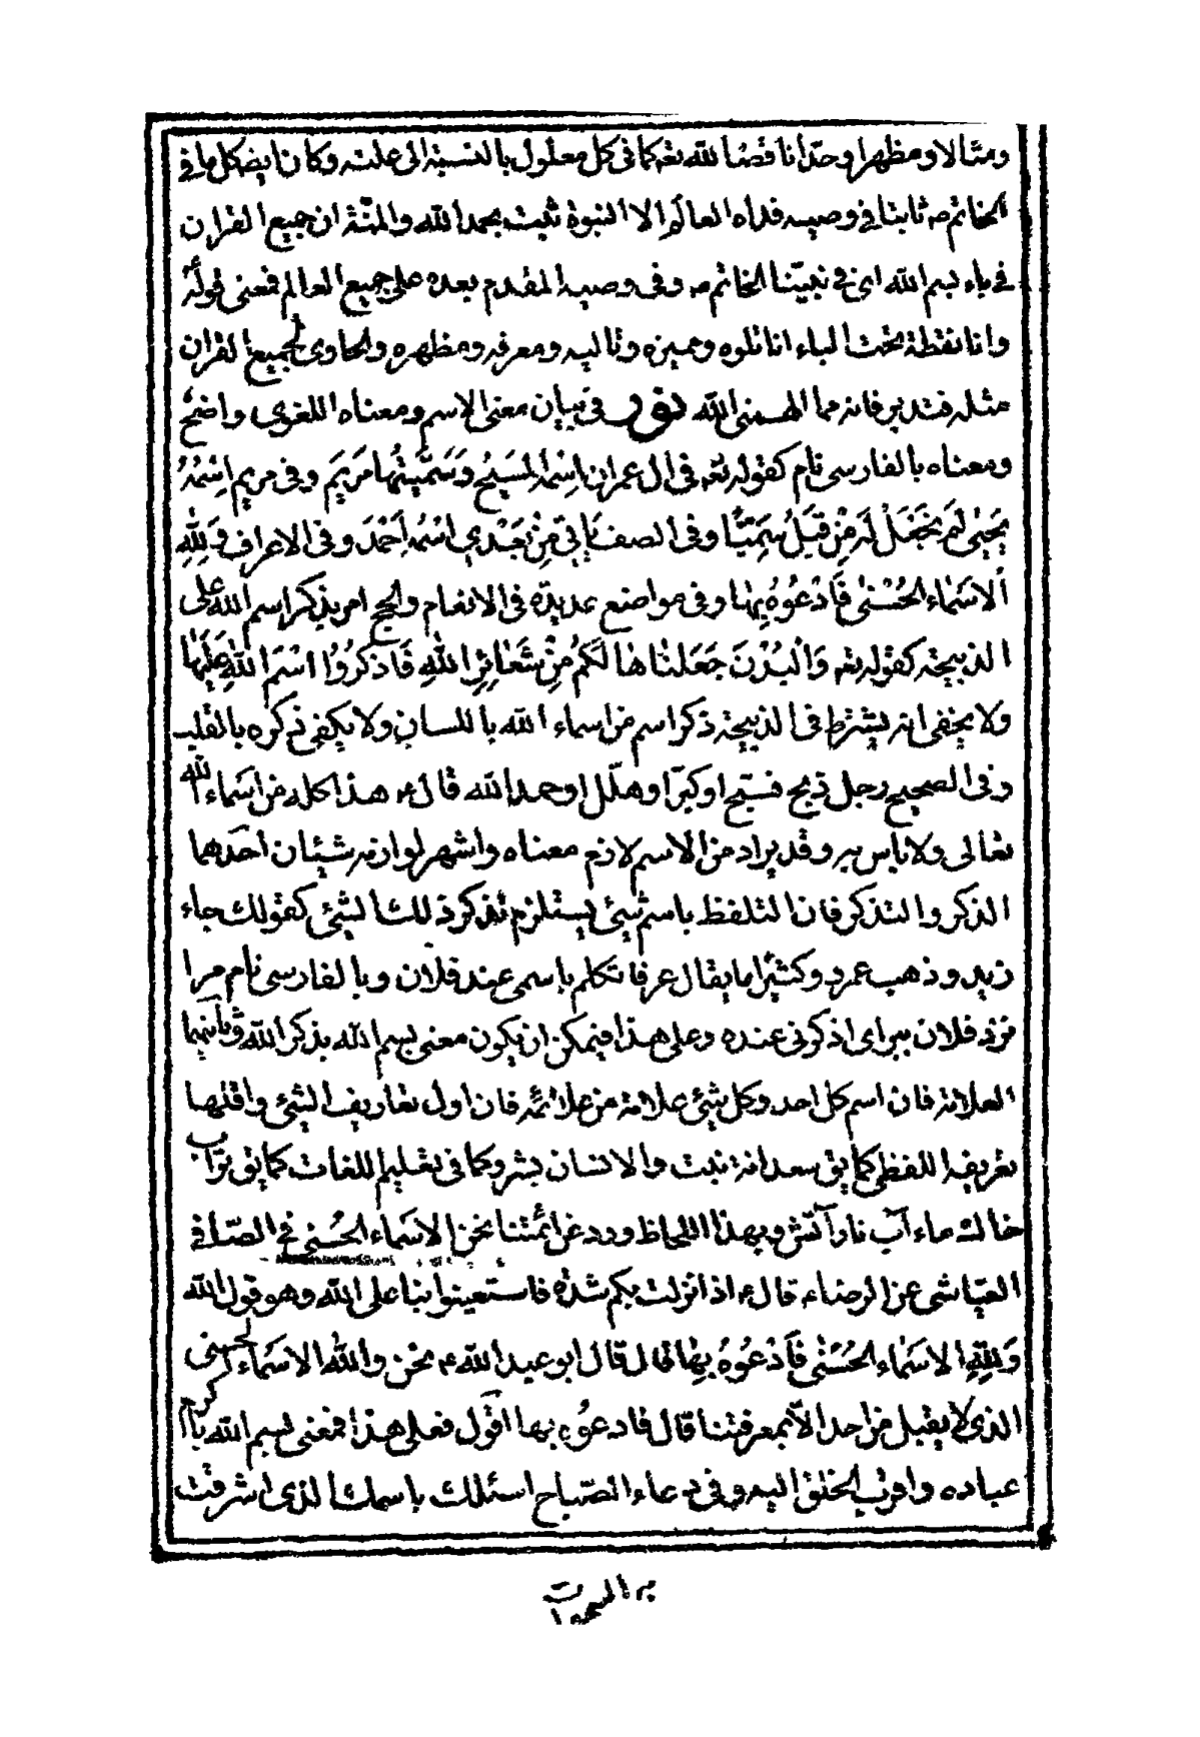 ومثالا ومظهرا وحدا ناقصا لله تعه كما فى كل معلول بالنسبة الى علته وكان ايض كل ما فى
الخاتم ص ثابتا فى وصيه فداه العالم الا النبوة ثبت بحمد الله والمنة ان جميع القران
فى باء بسم الله اى فى نبينا الخاتم ص وفى وصيه المقدم بعده على جميع العالم فمعنى قوله
وانا نقطة تحت الباء انا تلوه ومميزه وتاليه ومعرفه ومظهره والحاوى لجميع القران
مثله فتدبر فانه مما الهمنى الله نور فى تبيان معنى الاسم ومعناه اللغوى واضح
ومعناه بالفارسى نام كقوله تعه فى ال عمران اِسْمُهُ الْمَسِيحُ وَسَمَّيْتُهَا مَرْيَمَ وفى مريم اِسْمُهُ
يَحْيٰى لَمْ نَجْعَلْ لَهُ مِنْ قَبْلُ سَمِيًّا وفى الصف يَأْتِى مِنْ بَعْدِي اسْمُهُ اَحْمَدُ وفى الاعراف وَلِلّٰهِ
اَلْاَسْمَاءُ الْحُسْنٰى فَادْعُوهُ بِهَا وفى مواضع عديدة فى الانعام والحج امر بذكر اسم الله على
الذبيحة كقوله تعه وَالْبُدْنَ جَعَلْنَاهَا لَكُمْ مِنْ شَعَائِرِ اللّٰهِ فَاذْكُرُوا اسْمَ اللّٰهِ عَلَيْهَا
ولا يخفى انه يشترط فى الذبيحة ذكر اسم من اسماء الله باللسان ولا يكفى ذكره بالقلب
وفى الصحيح رجل ذبح فسبح او كبر او هلل او حمد الله قال ع هذا كله من اسماء الله
تعالى ولا باس به وقد يراد من الاسم لازم معناه واشهر لوازمه شيئان احدهما
الذكر والتذكر فان التلفظ باسم شيئ يستلزم تذكر ذلك الشيئ كقولك جاء
زيد وذهب عمرو وكثيرا ما يقال عرفا تكلم باسمى عند فلان وبالفارسى نام مرا
نزد فلان ببر اى اذكرنى عنده وعلى هذا فيمكن ان يكون معنى بسم الله بذكر الله وثانيهما
العلامة فان اسم كل احد وكل شيئ علامة من علائمه فان اول تعاريف الشيئ واقلها
تعريفه اللفظى كما يق سعدانة نبت والانسان بشر وكما فى تعليم اللغات كما يق تراب
خاك ماء آب نار آتش وبهذا اللحاظ ورد عن ائمتنا نحن الاسماء الحسنى فى الصافى
العياشى عن الرضاء قال ع اذا نزلت بكم شدة فاستعينوا بنا على الله وهو قول الله
وَلِلّٰهِ الْاَسْمَاءُ الْحُسْنٰى فَادْعُوهُ بِهَا قال قال ابو عبد الله ع نحن والله الاسماء الحسنى
الذى لا يقبل من احد الا بمعرفتنا قال فادعوه بها اقول فعلى هذا فمعنى بسم الله باكرم
عباده واقرب الخلق اليه وفى دعاء الصباح اسئلك باسمك الذى اشرقت
به السموات